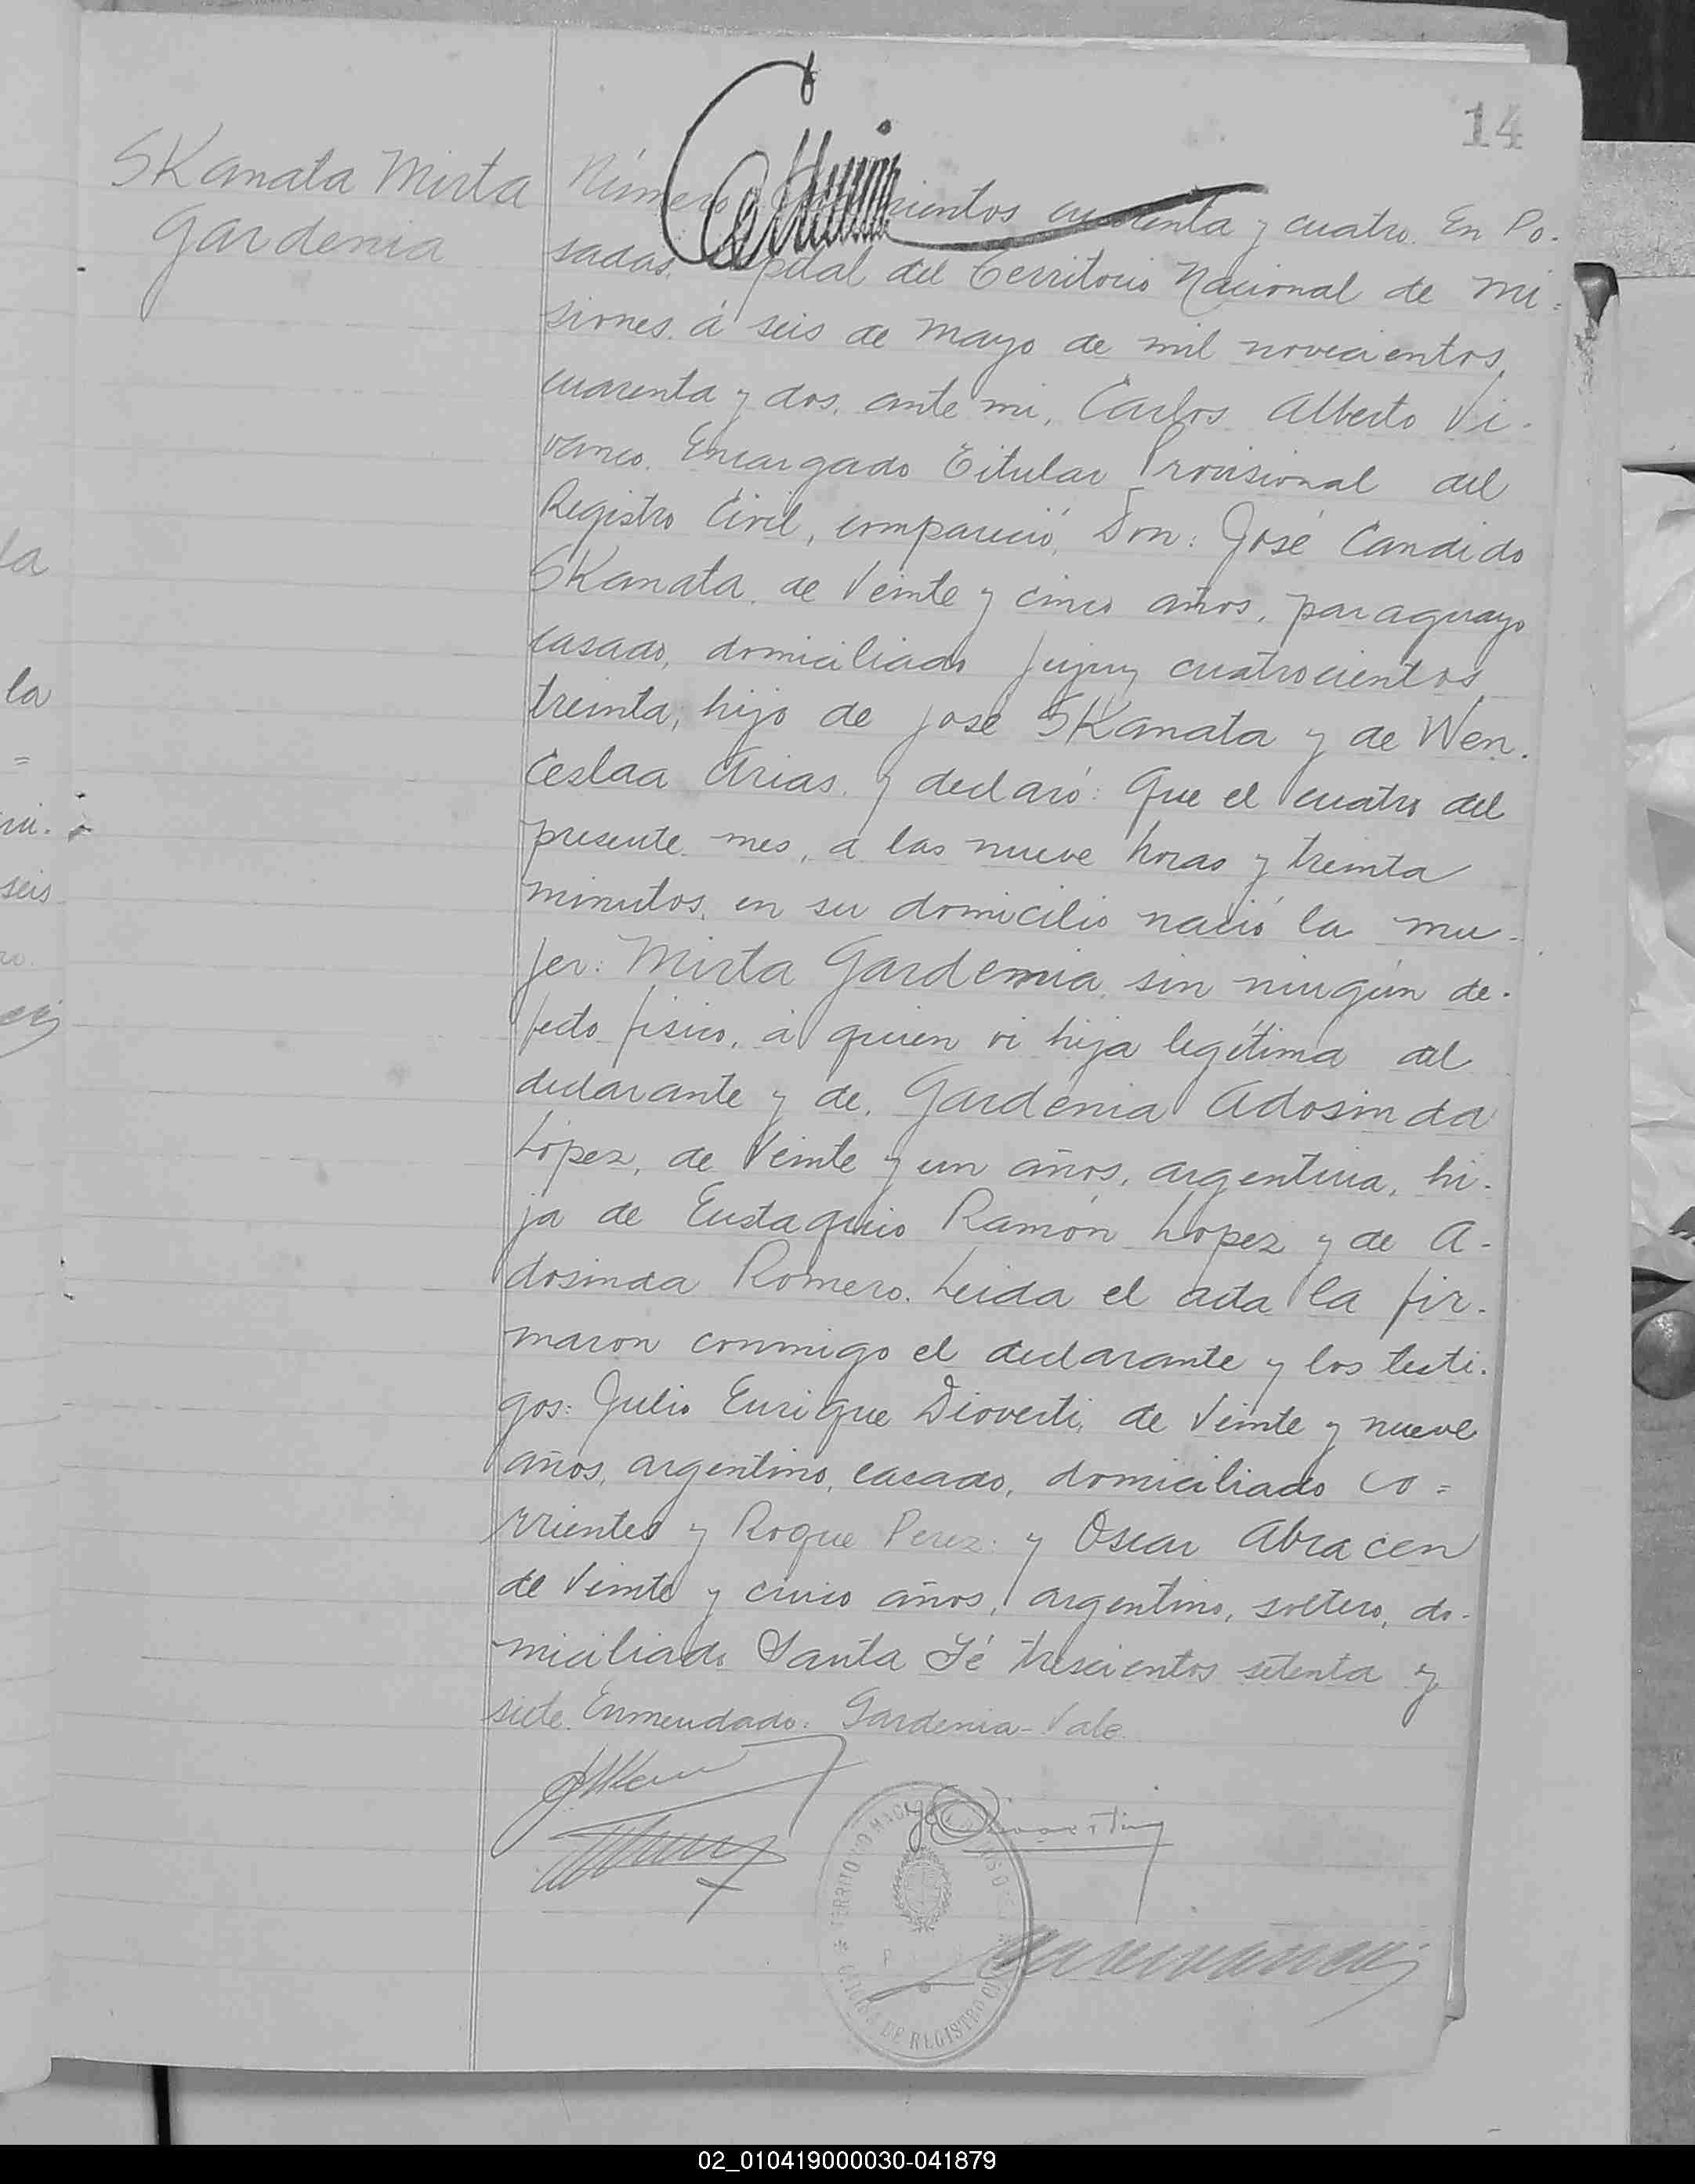 14
SKanata Mirta
Gardenia
Número cuarenta y cuatro. En Po-
sadas, Capital del Territorio Nacional de Mi=
siones á seis de mayo de mil novecientos
cuarenta y dos, ante mi, Carlos Alberto Vi-
vanco. Encargado Titular Provisional del
Registro Civil, compareció, Don: José Candido
SKanata, de Veinte y cinco años, paraguayo
casado, domiciliado Jujuy cuatrocientos
treinta, hijo de José SKanata y de Wen-
ceslaa Arias, y declaró: Que el cuatro del
presente mes, á las nueve horas y treinta
minutos, en su domicilio nació la mu-
jer: Mirta Gardenia, sin ningún de-
fecto fisico, á quien vi hija legítima del
declarante y de, Gardenia Adosinda
López, de Veinte y un años, argentina, hi-
ja de Eustaquio Ramón Lopez y de A-
dosinda Romero. Leida el acta la fir-
maron conmigo el declarante y los testi-
gos: Julio Enrique Dioverti, de Veinte y nueve
años, argentino, casado, domiciliado Co=
rrientes y Roque Perez: y Oscar Abracen
de Veinte y cinco años, argentino, soltero, do-
miciliado Santa Fé trescientos setenta y
siete. Enmendado: Gardenia-Vale.
TERRITORIO NACIONAL DE MISIONES
OFICINA DE REGISTRO CIVIL
la
la
=
seis
02_010419000030-041879